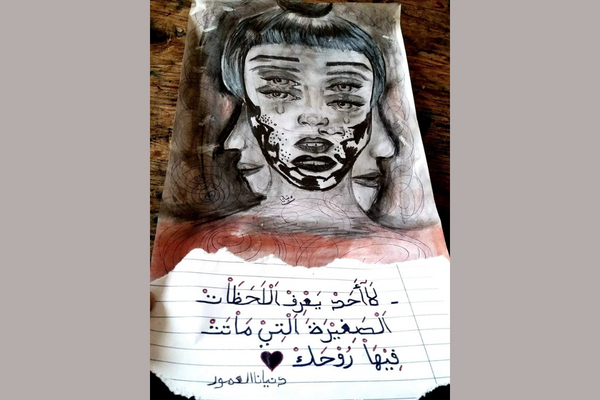 - لَا أَحَدْ يَعْرِفْ اَللَحَظَاْتْ
اَلْصَغِيْرَة اَلْتِيْ مَاْتَتْ
فِيْهَاْ رُوْحَكْ
دنيانا العمور